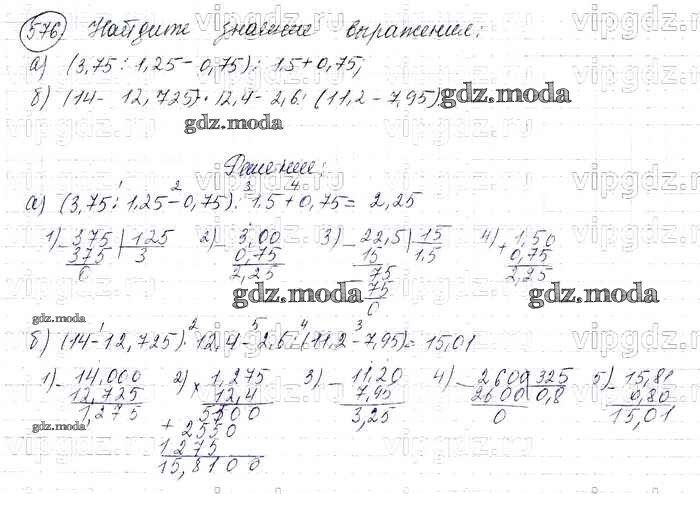 576) Найдите значение выражения:
а) (3,75 : 1,25 - 0,75) : 1,5 + 0,75;
б) (14 - 12,725) · 12,4 - 2,6 : (11,2 - 7,95).
gdz.moda
gdz.moda
Решение:
а) (3,75 : 1,25 - 0,75) : 1,5 + 0,75 = 2,25
1) - 375 | 125 2) - 3,00 3) - 22,5 | 15 4) + 1,50
375 3 0,75 15 1,5 0,75
0 2,25 75 2,25
75
0
gdz.moda
gdz.moda
gdz.moda
б) (14 - 12,725) · 12,4 - 2,6 : (11,2 - 7,95) = 15,01
1) - 14,000 2) × 1,275 3) - 11,20 4) - 2600 | 325 5) - 15,81
12,725 12,4 7,95 2600 0,8 0,80
1,275 5100 3,25 0 15,01
gdz.moda
+ 2550
1275
15,8100
vipgdz.ru